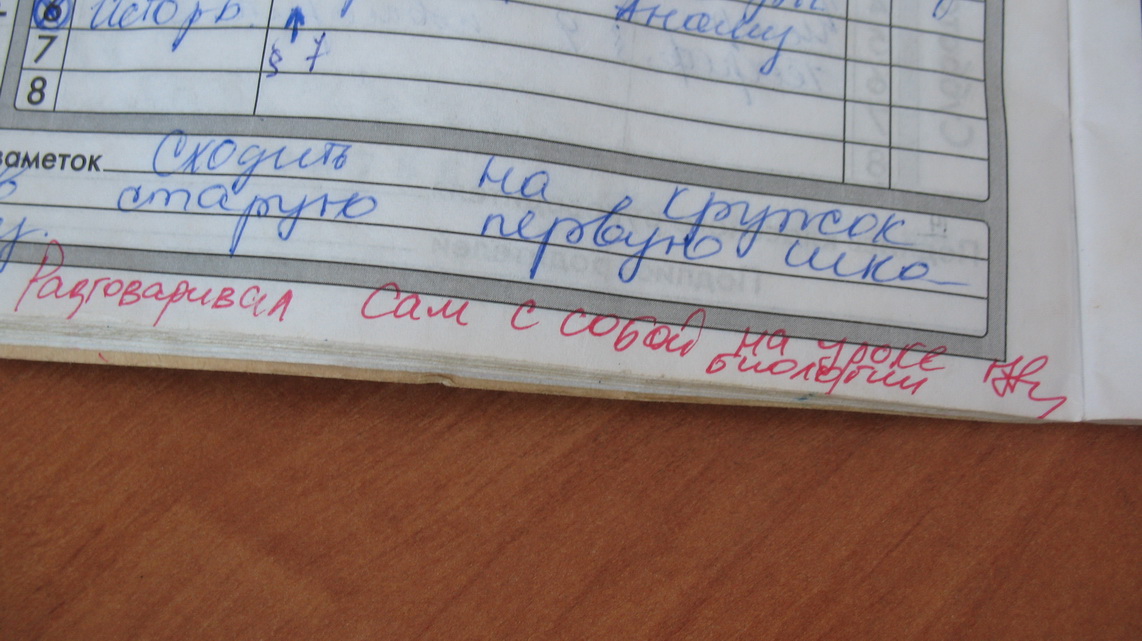 6 Истор
7 § 7
8
заметок Сходить на кружок
старую первую шко-
Разговаривал сам с собой на уроке
биологии